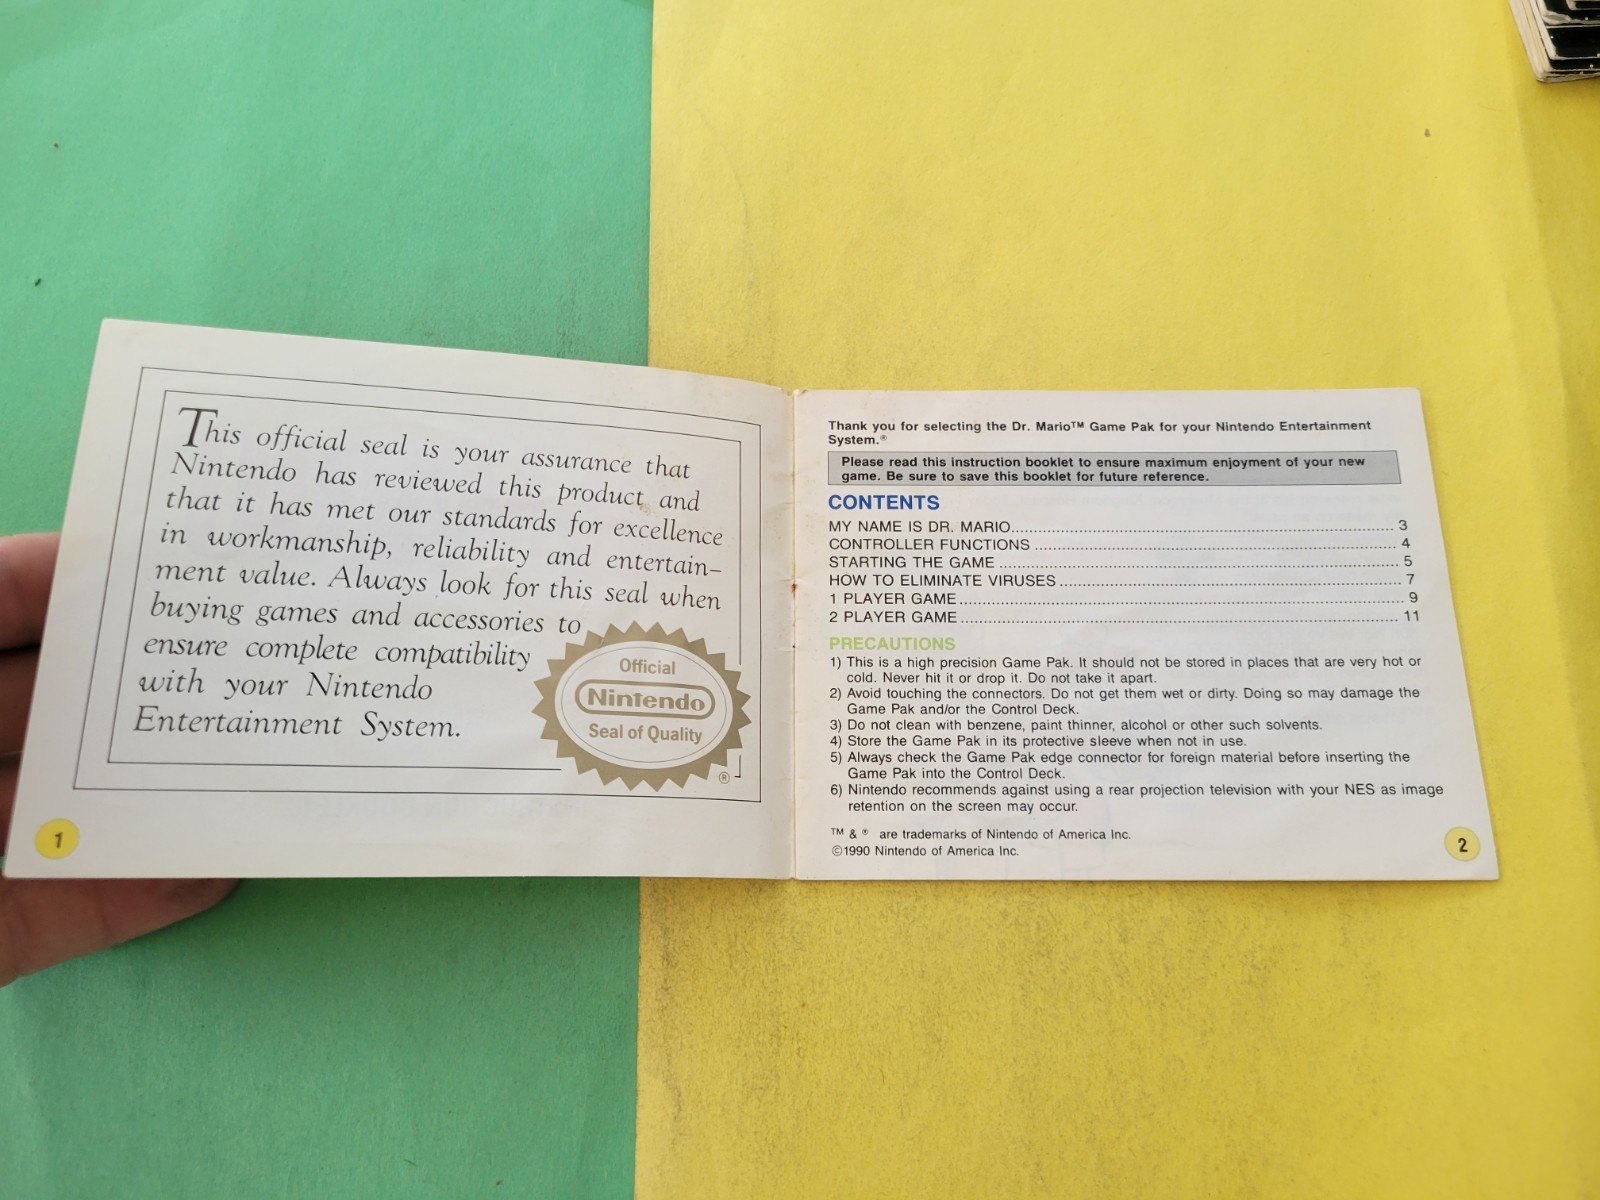 This official seal is your assurance that
Nintendo has reviewed this product and
that it has met our standards for excellence
in workmanship, reliability and entertain-
ment value. Always look for this seal when
buying games and accessories to
ensure complete compatibility
with your Nintendo
Entertainment System.
Official
Nintendo
Seal of Quality
®
1
Thank you for selecting the Dr. Mario™ Game Pak for your Nintendo Entertainment
System.®
Please read this instruction booklet to ensure maximum enjoyment of your new
game. Be sure to save this booklet for future reference.
CONTENTS
MY NAME IS DR. MARIO........ 3
CONTROLLER FUNCTIONS ........ 4
STARTING THE GAME ........ 5
HOW TO ELIMINATE VIRUSES ........ 7
1 PLAYER GAME ........ 9
2 PLAYER GAME ........ 11
PRECAUTIONS
1) This is a high precision Game Pak. It should not be stored in places that are very hot or
cold. Never hit it or drop it. Do not take it apart.
2) Avoid touching the connectors. Do not get them wet or dirty. Doing so may damage the
Game Pak and/or the Control Deck.
3) Do not clean with benzene, paint thinner, alcohol or other such solvents.
4) Store the Game Pak in its protective sleeve when not in use.
5) Always check the Game Pak edge connector for foreign material before inserting the
Game Pak into the Control Deck.
6) Nintendo recommends against using a rear projection television with your NES as image
retention on the screen may occur.
™ & ® are trademarks of Nintendo of America Inc.
©1990 Nintendo of America Inc.
2